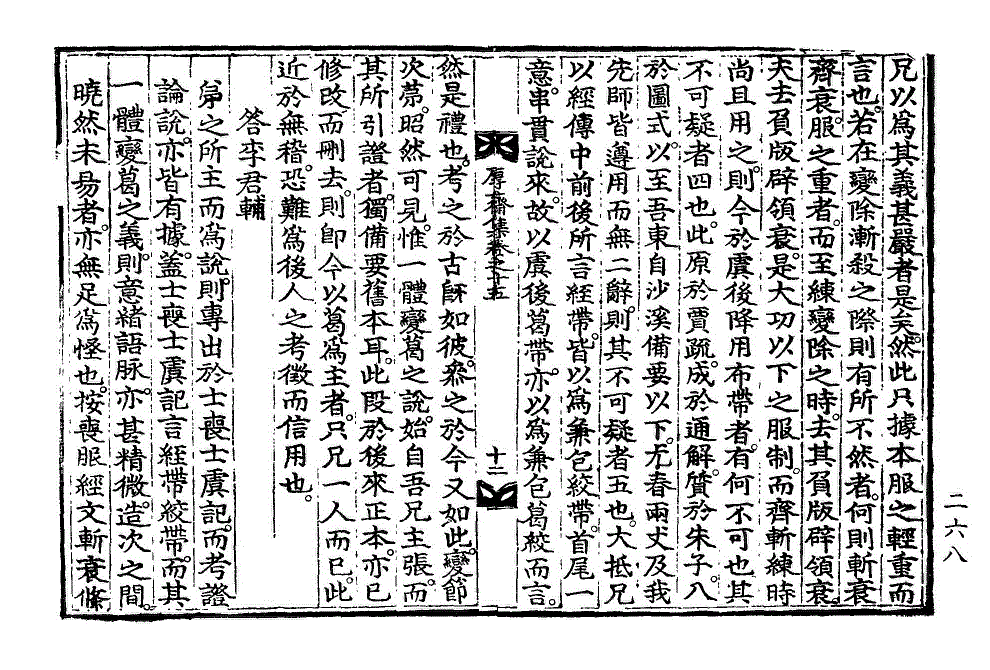 兄以爲其義甚嚴者是矣然此只據本服之輕重而
言也若在變除漸殺之際則有所不然者何則斬衰
齊衰服之重者而至練變除之時去其負版辟領衰
夫去負版辟領衰是大功以下之服制而齊斬練時
尚且用之則今於虞後降用布帶者有何不可也其
不可疑者四也此原於賈疏成於通解贊於朱子八
於圖式以至吾東自沙溪備要以下尤春兩丈及我
先師皆遵用而無二辭則其不可疑者五也大抵兄
以經傳中前後所言絰帶皆以爲兼包絞帶首尾一
意串貫說來故以虞後葛帶亦以爲兼包葛絞而言
厚齋集卷之十五
十二
然是禮也考之於古旣如彼叅之於今又如此變節
次第昭然可見惟一體變葛之說始自吾兄主張而
其所引證者獨備要舊本耳此段於後來正本亦已
修改而刪去則卽今以葛爲主者只兄一人而已此
近於無稽恐難爲後人之考徵而信用也
答李君輔
弟之所主而爲說則專出於士喪士虞記而考證
論說亦皆有據蓋士喪士虞記言絰帶絞帶而其
一體變葛之義則意緖語脉亦甚精微造次之間
曉然未易者亦無足爲怪也按喪服經文斬衰條
二六八